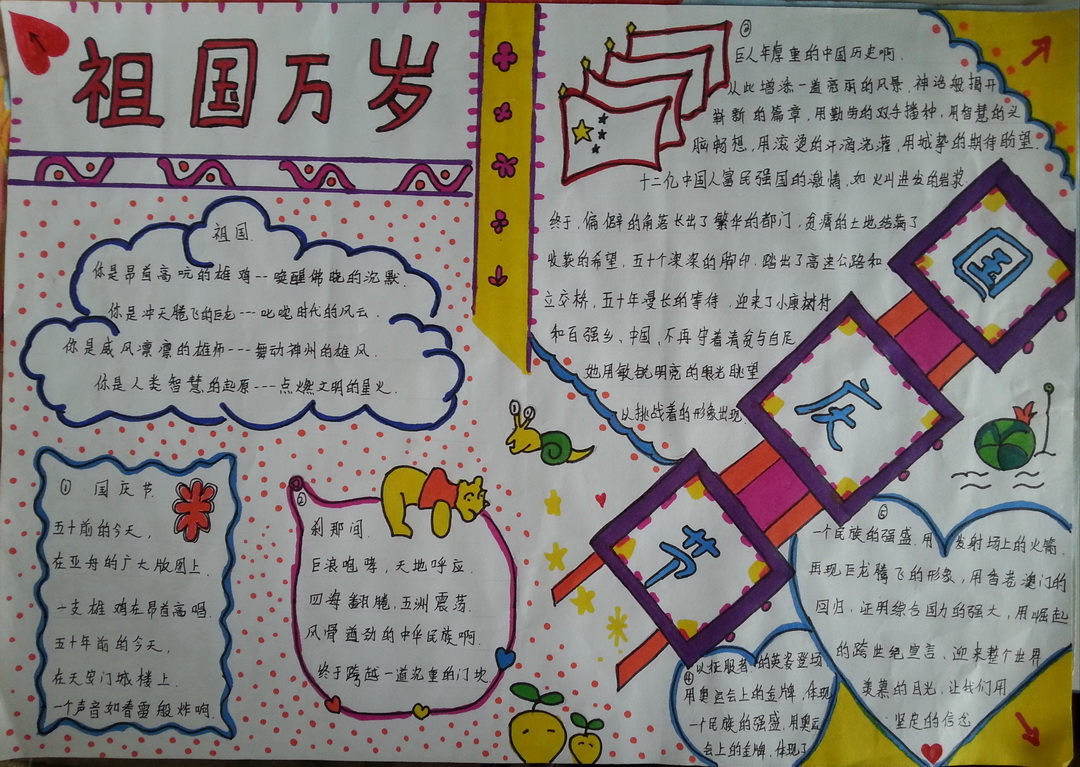 祖国万岁
祖国.
你是昂首高吭的雄鸡--唤醒佛晓的沉默.
你是冲天腾飞的巨龙---叱咤时代的风云.
你是威风凛凛的雄师---舞动神州的雄风.
你是人类智慧的起原---点燃文明的星火.
① 国庆节.
五十前的今天,
在亚舟的广大版图上.
一支雄鸡在昂首高唱.
五十年前的今天,
在天安门城楼上.
一个声音如春雷般炸响.
②
刹那间.
巨浪咆哮,天地呼应.
四海翻腾,五洲震荡.
风骨遒劲的中华民族啊.
终于跨越一道沉重的门坎
③
巨人年厚重的中国历史啊.
从此增添一道亮丽的风景,神话般揭开
崭新的篇章,用勤劳的双手播种,用智慧的头
脑畅想,用滚烫的汗滴浇灌,用城挚的期待盼望.
十二亿中国人富民强国的激情,如火山迸发的岩浆.
终于,偏僻的角落长出了繁华的都门,贫瘠的土地结满了
收获的希望,五十个深深的脚印.踏出了高速公路和
立交桥,五十年漫长的等待,迎来了小康树村
和百强乡、中国,不再守着清贫与自足
她用敏锐明亮的眼光眺望
以挑战着的形象出现.
国
庆
节
④
以征服者的英姿登场
用奥运会上的金牌,体现
一个民族的强盛.用奥运
会上的金牌,体现了
⑤
一个民族的强盛.用发射场上的火箭.
再现巨龙腾飞的形象,用香港澳门的
回归,证明综合国力的强大,用崛起
的跨世纪宣言,迎来整个世界
羡慕的目光,让我们用
坚定的信念